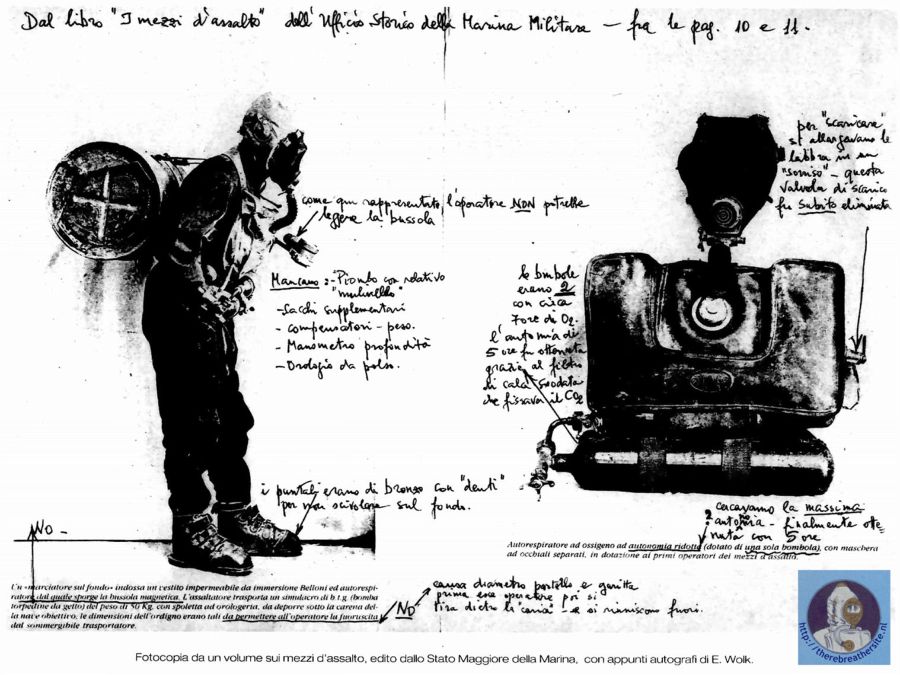 Dal libro "I mezzi d'assalto" dell'Ufficio Storico della Marina Militare – fra le pag. 10 e 11.
come qui rappresentato, l'operatore NON potrebbe
leggere la bussola
Mancano :- Piombo con relativo
"mulinello"
- Sacchi supplementari
- compensatori - peso.
- Manometro profondità
- Orologio da polso.
i puntali erano di bronzo con "denti"
per non scivolare sul fondo.
NO –
per "scaricare"
si allargavano le
labbra in un
"sorriso" – questa
valvola di scarico
fu subito eliminata
le bombole
erano 2
con circa
7 ore di O2.
l'autonomia di
5 ore fu ottenuta
grazie al filtro
di calce sodata
che fissava il CO2
? cercavamo la massima
autonomia – finalmente otte
nuta con 5 ore
Autorespiratore ad ossigeno ad autonomia ridotta (dotato di una sola bombola), con maschera
ad occhiali separati, in dotazione ai primi operatori dei mezzi d'assalto.
Un «marciatore sul fondo» indossa un vestito impermeabile da immersione Belloni ed autorespi-
ratore dal quale sporge la bussola magnetica. L'assaltatore trasporta un simulacro di b.t.g. (bomba
torpedine da getto) del peso di 50 Kg. con spoletta ad orologeria, da deporre sotto la carena del-
la nave obiettivo; le dimensioni dell'ordigno erano tali da permettere all'operatore la fuoruscita
dal sommergibile trasportatore.
NO
causa diametro portello e garitta
prima esce operatore poi si
tira dietro la "carica" – e si riuniscono fuori.
Fotocopia da un volume sui mezzi d'assalto, edito dallo Stato Maggiore della Marina, con appunti autografi di E. Wolk.
http://therebreathersite.nl